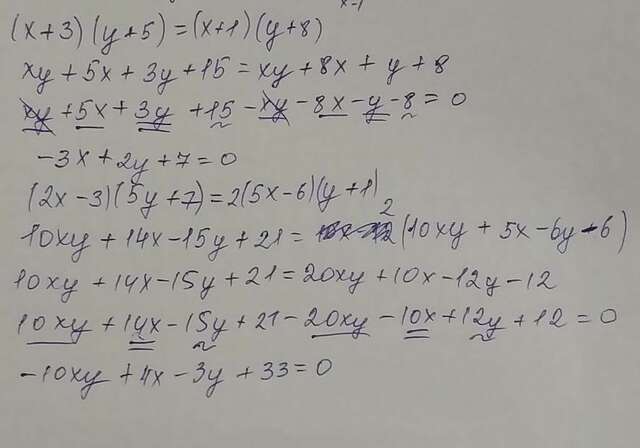 x-1
(x+3)(y+5)=(x+1)(y+8)
xy+5x+3y+15=xy+8x+y+8
xy+5x+3y+15-xy-8x-y-8=0
-3x+2y+7=0
(2x-3)(5y+7)=2(5x-6)(y+1)
10xy+14x-15y+21=2(10xy+5x-6y-6)
10xy+14x-15y+21=20xy+10x-12y-12
10xy+14x-15y+21-20xy-10x+12y+12=0
-10xy+4x-3y+33=0